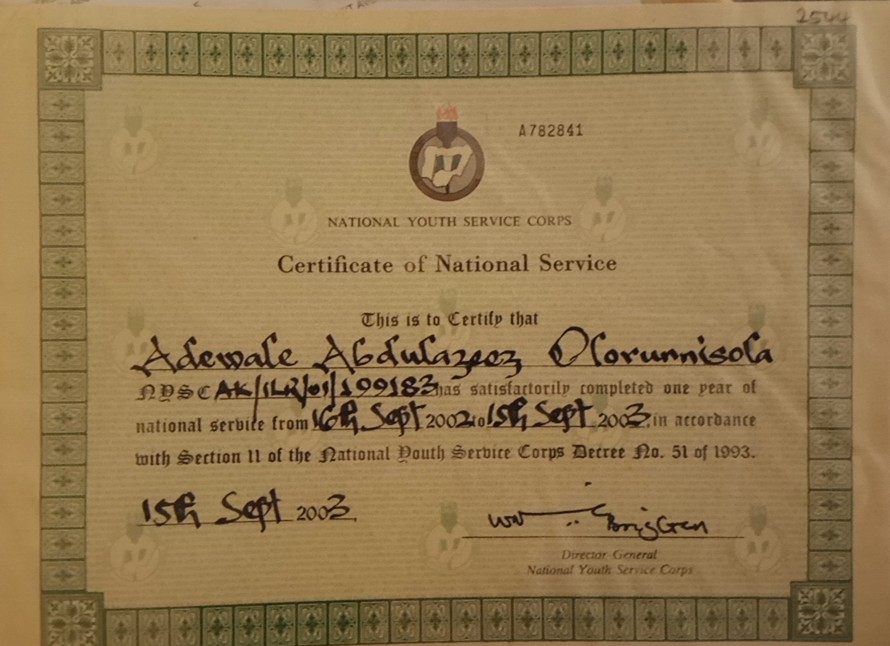 2544
A782841
NATIONAL YOUTH SERVICE CORPS
Certificate of National Service
This is to Certify that
Adewale Abdulazeez Olorunnisola
NYSC AK/ILR/01/199183 has satisfactorily completed one year of
national service from 16th Sept 2002 to 15th Sept 2003 in accordance
with Section 11 of the National Youth Service Corps Decree No. 51 of 1993.
15th Sept 2003
BrigGen
Director General
National Youth Service Corps